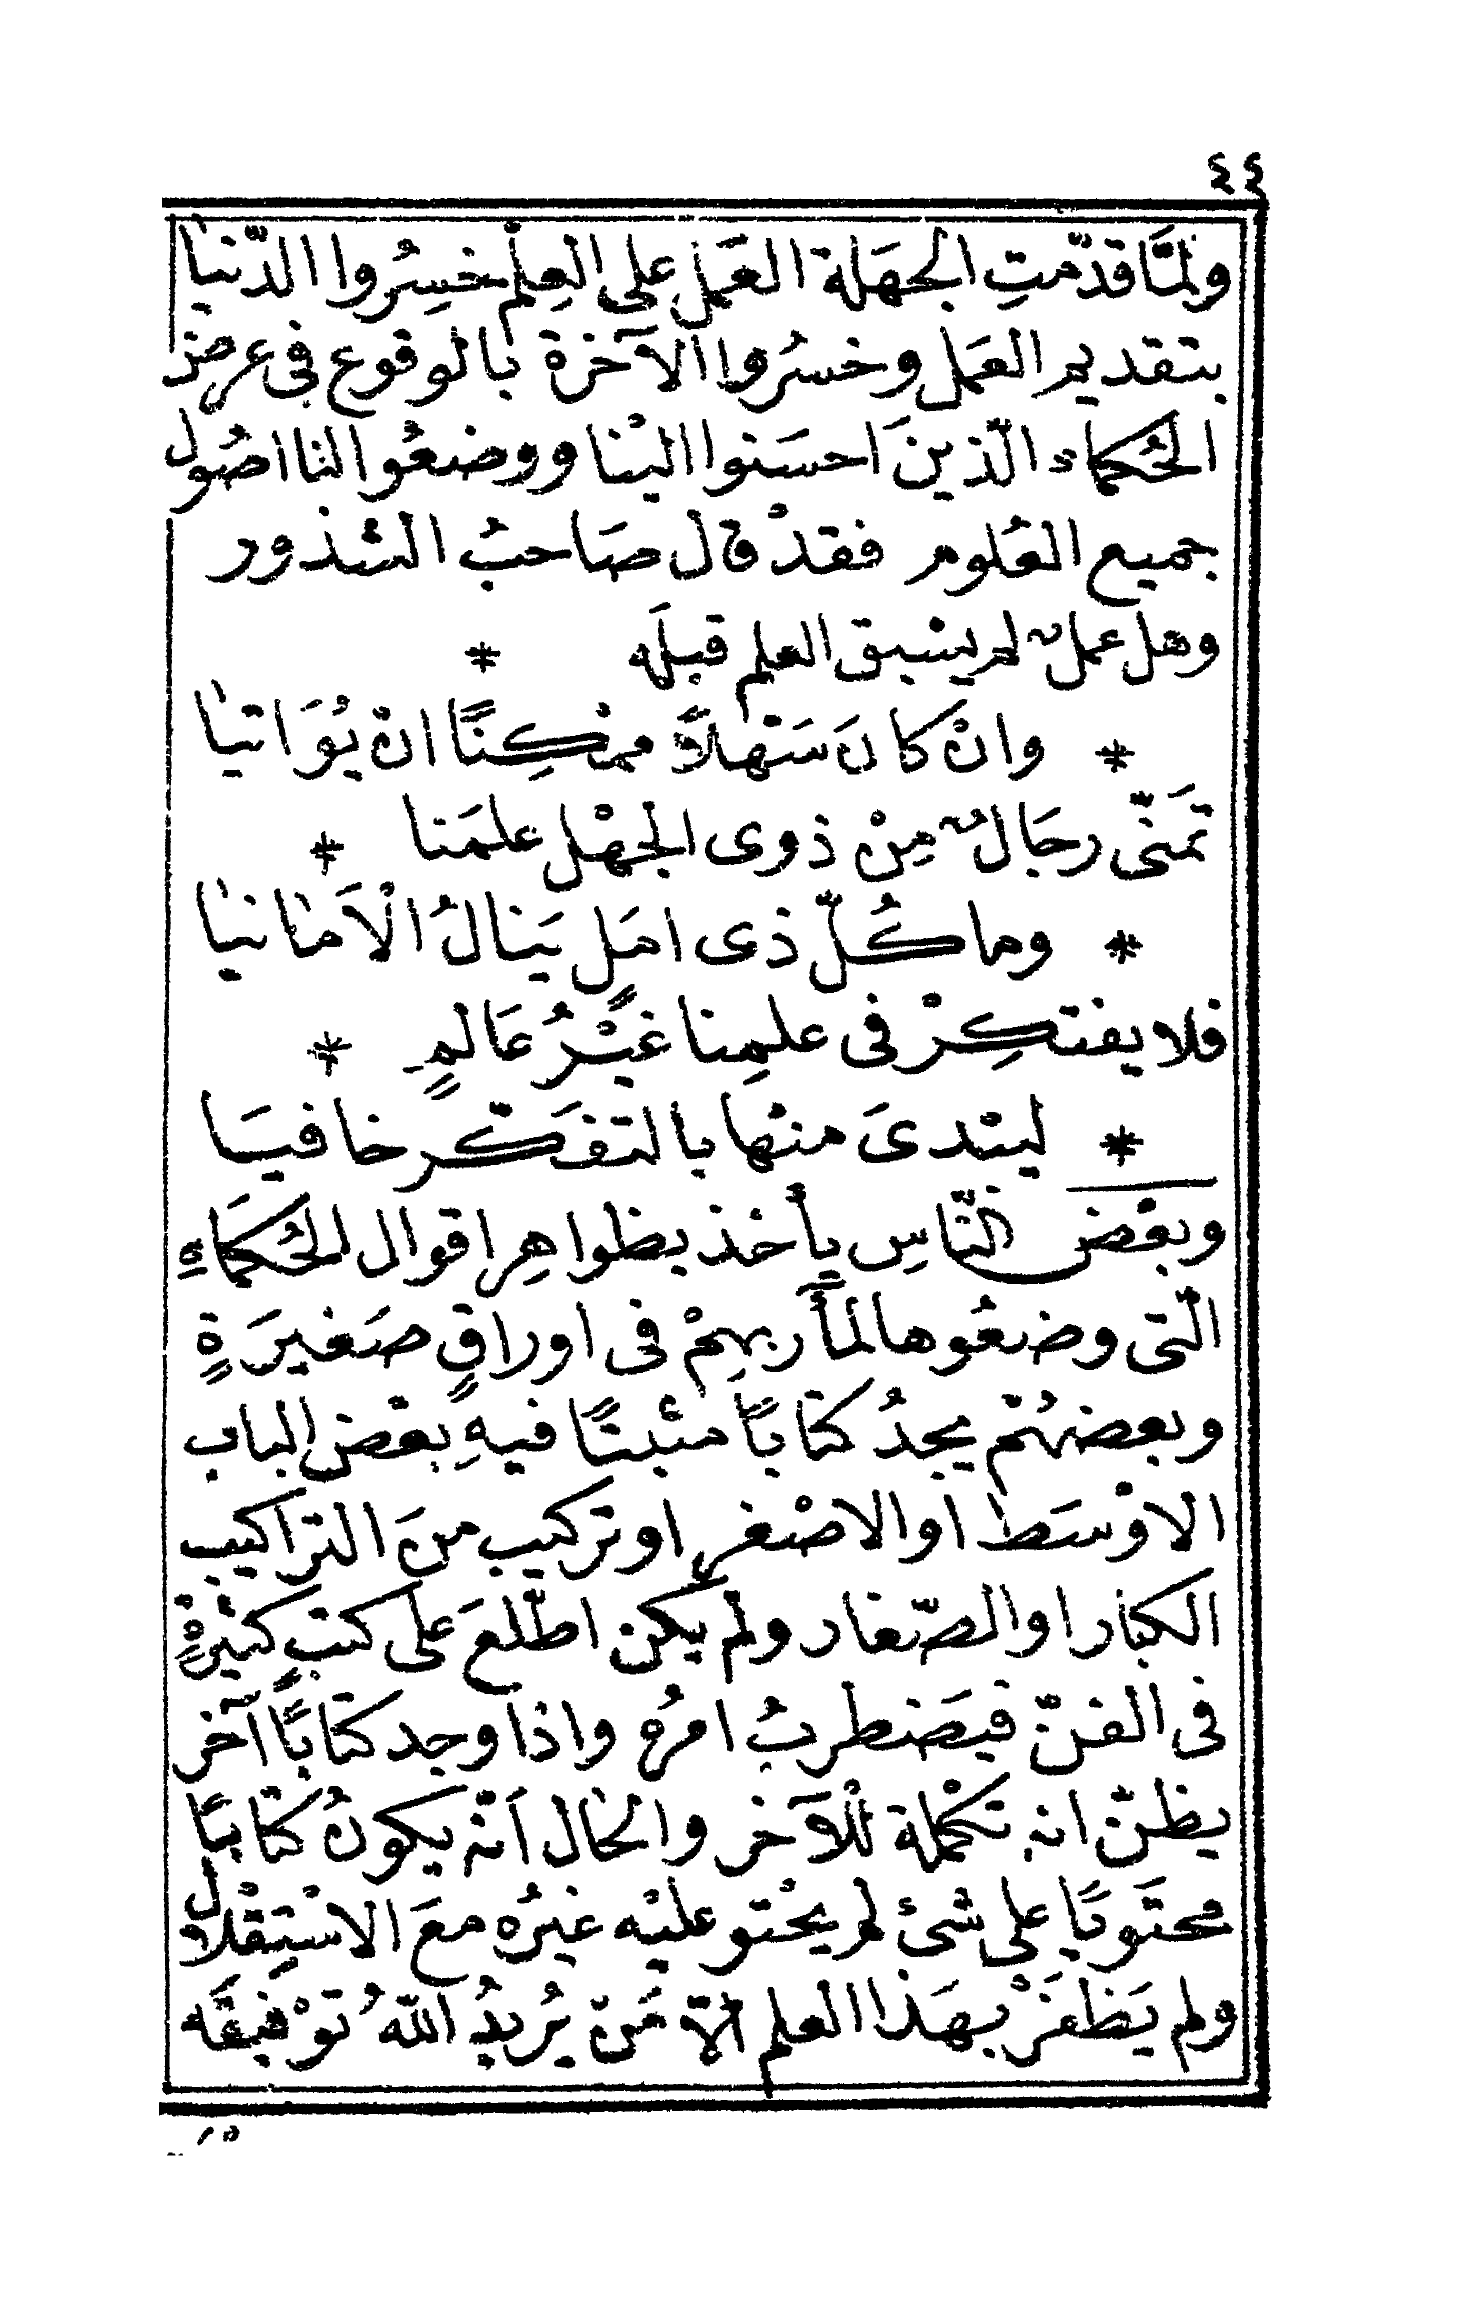 ٤٤
ولمَّا قدّمتِ الجهَلة العَمل على العِلْم خسِرُوا الدّنيا
بتقديم العَمل وخسرُوا الآخرة بالوقوع فى عرض
الحُكماء الّذينَ احسَنوا الينا ووضعُوا لنا اصُول
جميع العُلوم فقدْ قال صَاحبُ الشذور
وهل عملٌ لم يسْبق العلم قبلَه *
* وانْ كانَ سَهلاً ممْكِنًا انْ يُوَاتيا
تمَنّى رجَالٌ مِنْ ذوى الجهْل علمَنا *
* وما كُلّ ذى امَلٍ يَنالُ الْاَمانيا
فلا يفتكِرْ فى علمِنا غيْرُ عَالمٍ *
* ليبْدىَ منْها بالتفَكّر خافيَا
وبعْض النّاسِ يأخذ بظواهِر اقوال الحُكمَاءِ
الّتى وضعُوها لمأربهِمْ فى اوراقٍ صَغيرَةٍ
وبعضهُمْ يجدُ كتابًا مثبتًا فيهِ بعْض الباب
الاوْسَط او الاصْغر او تركيب منَ التراكيب
الكبار او الصّغار ولم يكن اطّلعَ على كتبٍ كثيرةٍ
فى الفنّ فيَضطربُ امرُه واذا وجد كتابًا آخر
يظنّ انه تكْملة للآخر والحال أنّه يكونُ كتابًا
محتَويًا على شئ لم يحْتو عليْه غيرُه معَ الاسْتِقْلال
ولم يَظفَرْ بهَذا العلم الاّ مَنْ يُريدُ اللّهُ توْفيقَه